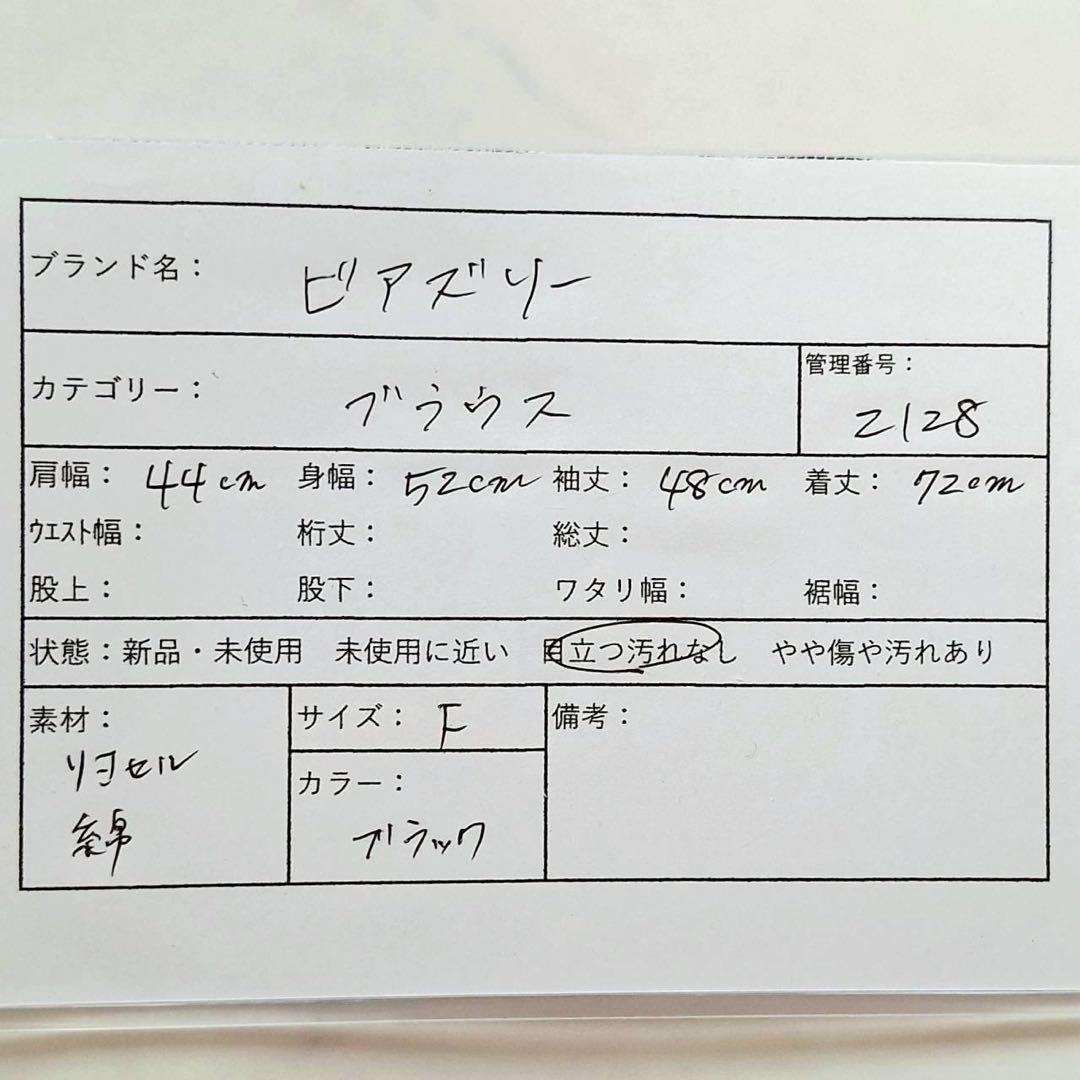 ブランド名： ビアズリー
カテゴリー： ブラウス
管理番号：
2128
肩幅： 44cm 身幅： 52cm 袖丈： 48cm 着丈： 72cm
ｳｴｽﾄ幅： 桁丈： 総丈：
股上： 股下： ワタリ幅： 裾幅：
状態：新品・未使用 未使用に近い 目立つ汚れなし やや傷や汚れあり
素材：
リヨセル
綿
サイズ： F
カラー：
ブラック
備考：